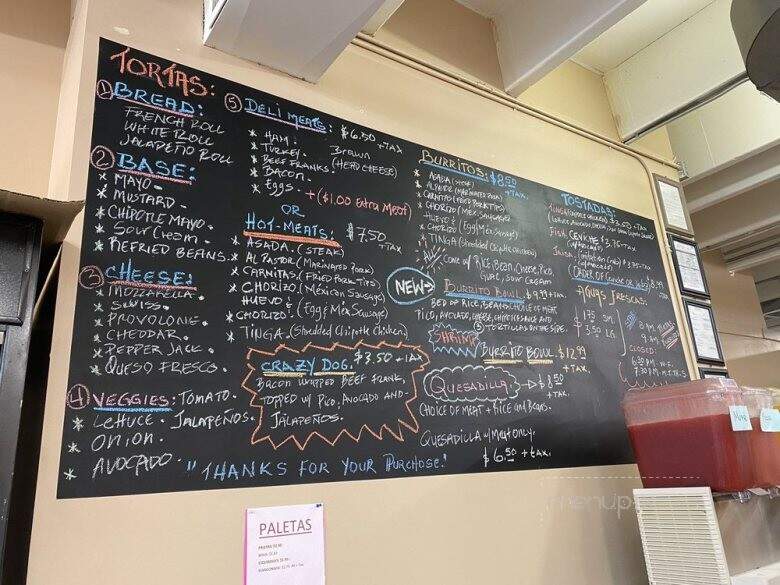 TORTAS:
① BREAD:
FRENCH ROLL
WHITE ROLL
JALAPEÑO ROLL
② BASE:
* MAYO.
* MUSTARD.
* CHIPOTLE MAYO.
* SOUR CREAM.
* REFRIED BEANS.
③ CHEESE:
* MOZZARELLA.
* SWISS.
* PROVOLONE.
* CHEDDAR.
* PEPPER JACK.
* QUESO FRESCO.
④ VEGGIES: TOMATO.
* LETTUCE. JALAPEÑOS.
* ONION.
* AVOCADO.
"THANKS FOR YOUR PURCHASE."
⑤ DELI MEATS: $6.50 +TAX
* HAM.
* TURKEY. Brown
* BEEF FRANKS. (HEAD CHEESE)
* BACON.
* EGGS. +($1.00 Extra Meat)
OR
HOT-MEATS: $7.50 +TAX
* ASADA. (STEAK)
* AL PASTOR (MARINATED PORK)
* CARNITAS. (FRIED PORK TIPS)
* CHORIZO. (Méxican Sausage)
HUEVO &
* CHORIZO. (Egg & Méx Sausage)
* TINGA. (Shredded Chipotle Chicken)
CRAZY DOG. $3.50 +TAX
BACON WRAPPED BEEF FRANK,
TOPPED W/ PICO, AVOCADO AND
JALAPEÑOS.
BURRITOS: $8.50 +TAX.
* ASADA (STEAK)
* AL PASTOR (MARINATED PORK)
* CARNITAS (FRIED PORK TIPS)
* CHORIZO (MÉX SAUSAGE)
HUEVO &
* CHORIZO (Egg & Méx SAUSAGE)
* TINGA (Shredded Chipotle CHICKEN)
ALL COME W/ RICE, BEAN, CHEESE, PICO,
GUAC, SOUR CREAM
NEW→ BURRITO BOWL $9.99 +TAX.
BED OF RICE, BEANS, CHOICE OF MEAT
PICO, AVOCADO, CHEESE, CHIPOTLE SAUCE AND
③ TORTILLAS ON THE SIDE.
SHRIMP BURRITO BOWL. $12.99 +TAX.
QUESADILLA → $8.50 +TAX.
CHOICE OF MEAT + RICE AND BEANS.
QUESADILLA W/ MEAT ONLY.
$6.50 + TAX.
TOSTADAS:
TINGA (CHIPOTLE CHICKEN) $3.50 +TAX
FISH CEVICHE $3.75 +TAX
JAIBA. $3.75 +TAX
(ORDER OF Ceviche or Jaiba) 8.99 +TAX
AGUAS FRESCAS.
1.75 SM.
3.50 LG.
8 AM
9 AM
CLOSED:
PALETAS
Mango